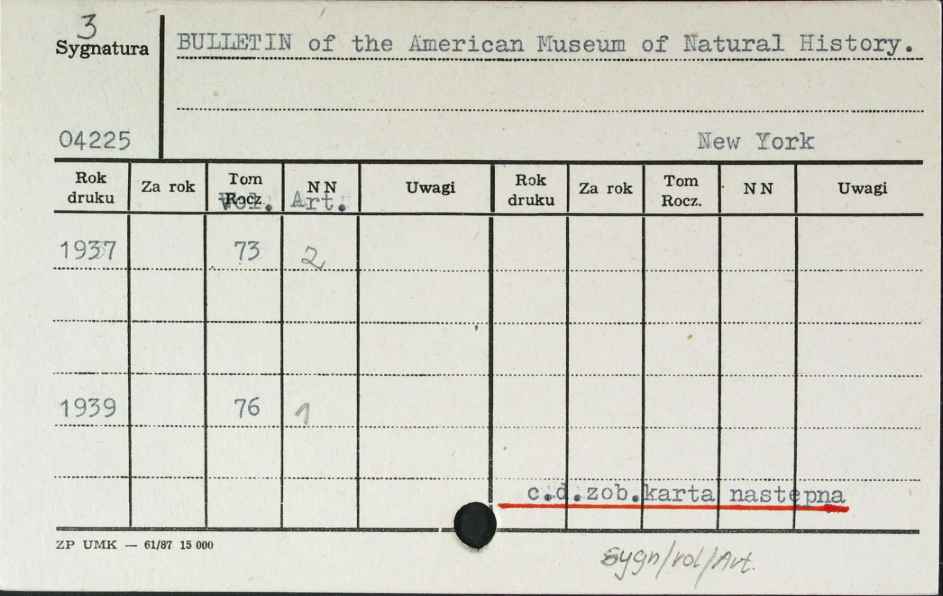 3
Sygnatura
BULLETIN of the American Museum of Natural History.
04225
New York
Rok druku Za rok Tom Rocz. NN Uwagi Rok druku Za rok Tom Rocz. NN Uwagi
Vol. Art.
1937 73 2
1939 76 1
c.d.zob.karta następna
ZP UMK — 61/87 15 000
sygn/vol/Art.